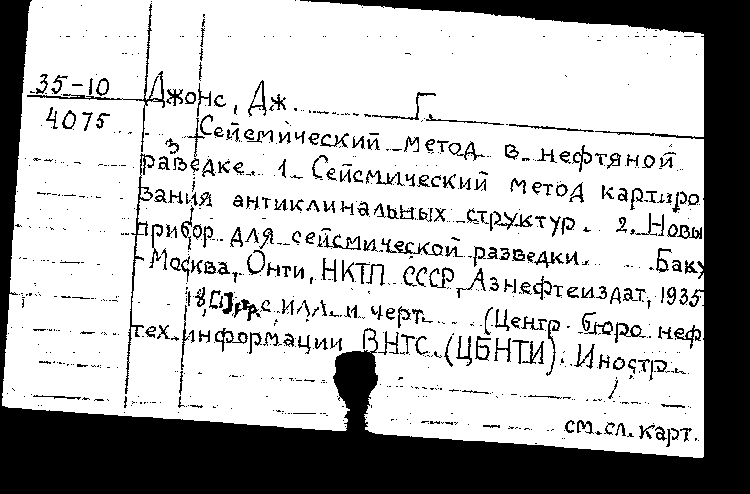 35-10 Джонс, Дж. Г.
4075 Сейсмический метод в нефтяной
разведке. 1. Сейсмический метод картиро
вания антиклинальных структур. 2. Новы
прибор для сейсмической разведки. Баку
- Москва, Онти, НКТП СССР, Азнефтеиздат, 1935
с илл. и черт. (Центр. бюро неф
тех. информации ВНТС. (ЦБНТИ). Иностр.
см. сл. карт.